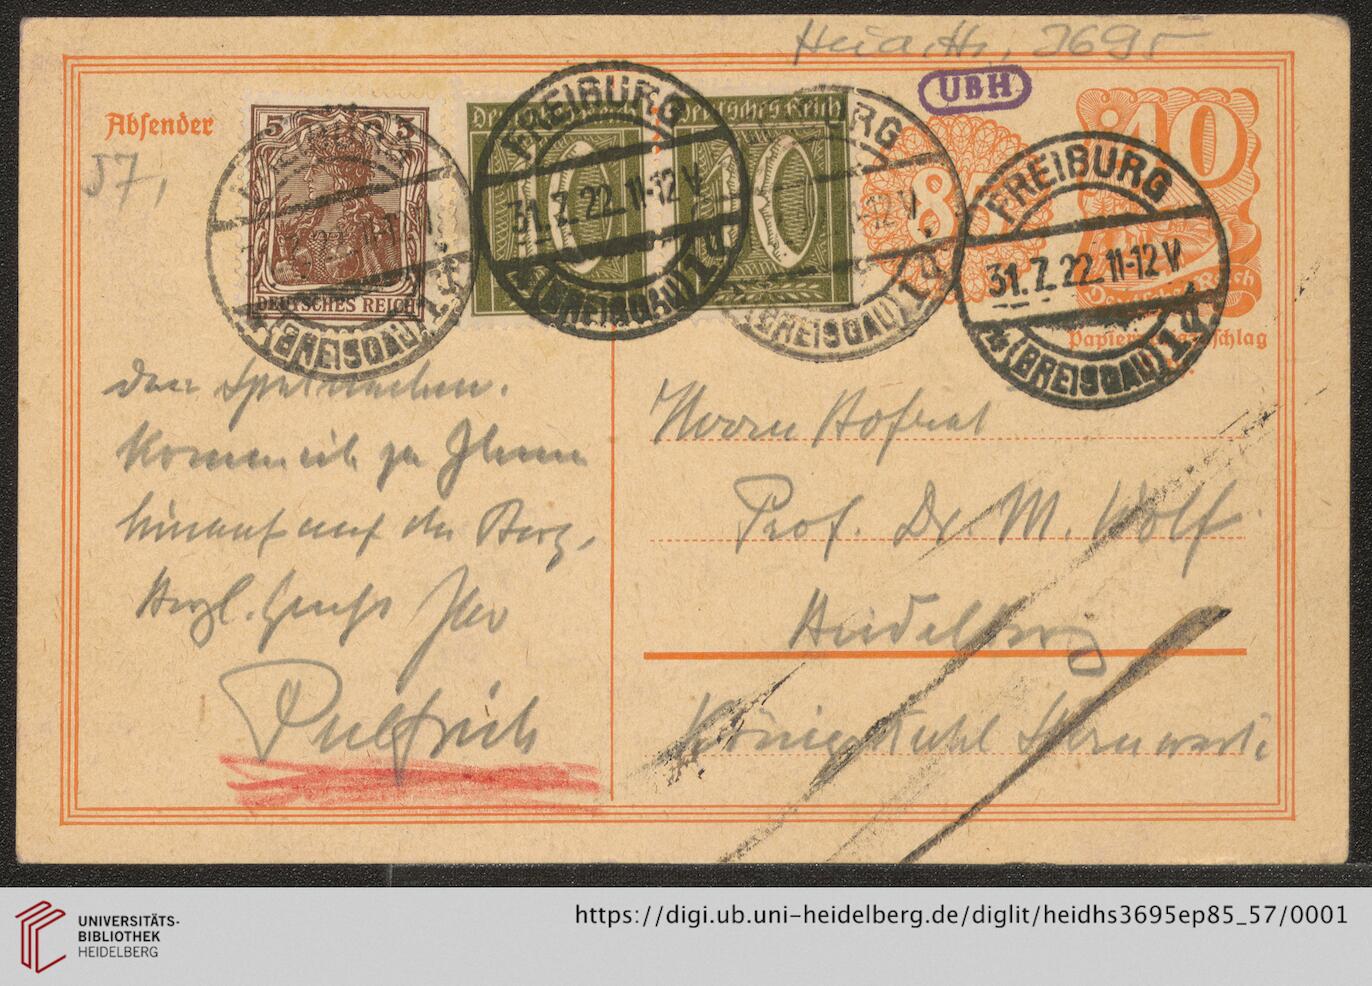 Heid. Hs. 3695
UBH
Absender
57,
5 5
DEUTSCHES REICH
Deutsches Reich
10
Deutsches Reich
10
85
40
Deutsches Reich
Papier zuschlag
FREIBURG
31.7.22.11-12V
(BREISGAU) 1d
FREIBURG
31.7.22.11-12V
(BREISGAU) 1d
den
Komme ich zu Ihnen
hinauf auf den Berg.
Herzl. Gruß Ihr
Pulfrich
Herrn Hofrat
Prof. Dr. M. Wolf
Heidelberg
Königstuhl Sternwarte
UNIVERSITÄTS-
BIBLIOTHEK
HEIDELBERG
https://digi.ub.uni-heidelberg.de/diglit/heidhs3695ep85_57/0001